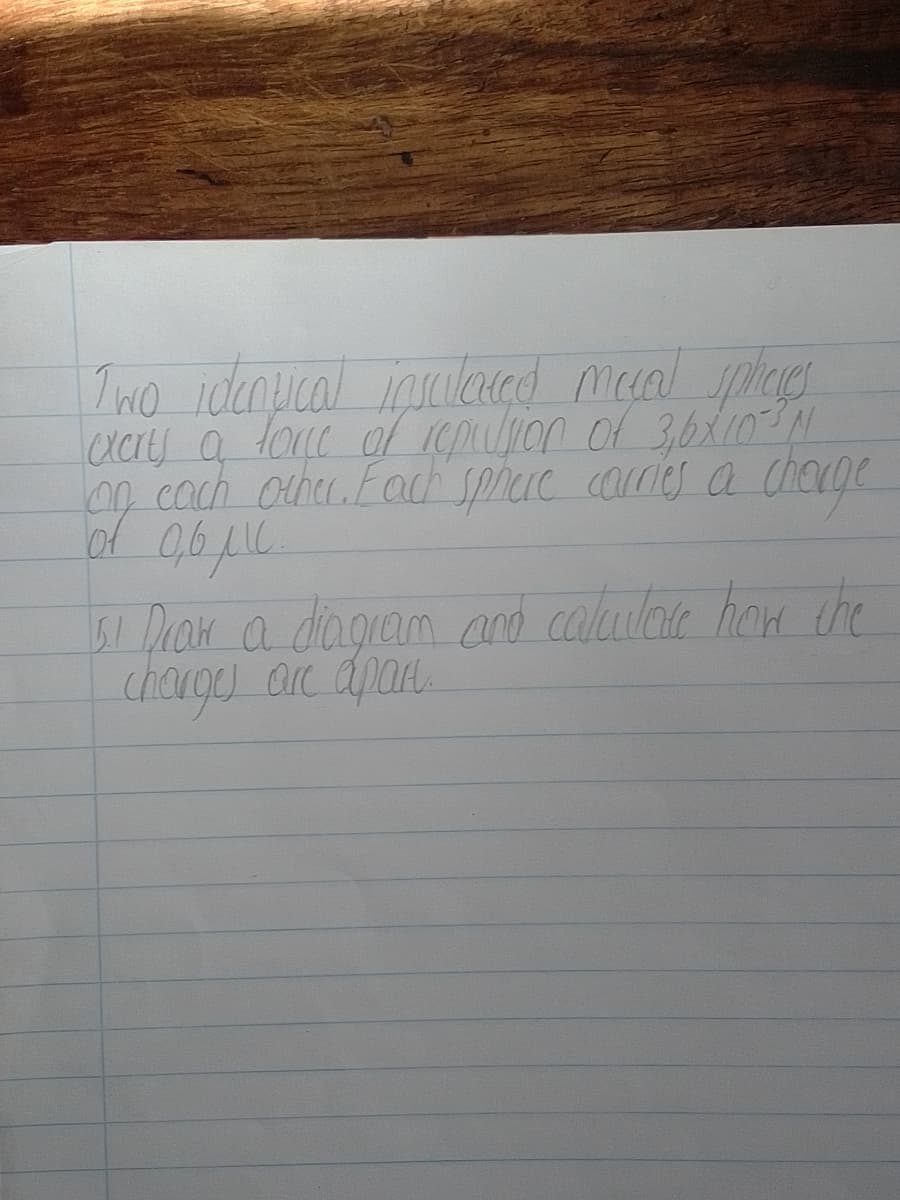 Two identical insulated metal spheres
exerts a force of repulsion of 3,6x10⁻³N
on each other. Each sphere carries a charge
of 0,6 µC.
5.1 Draw a diagram and calculate how the
charges are apart.